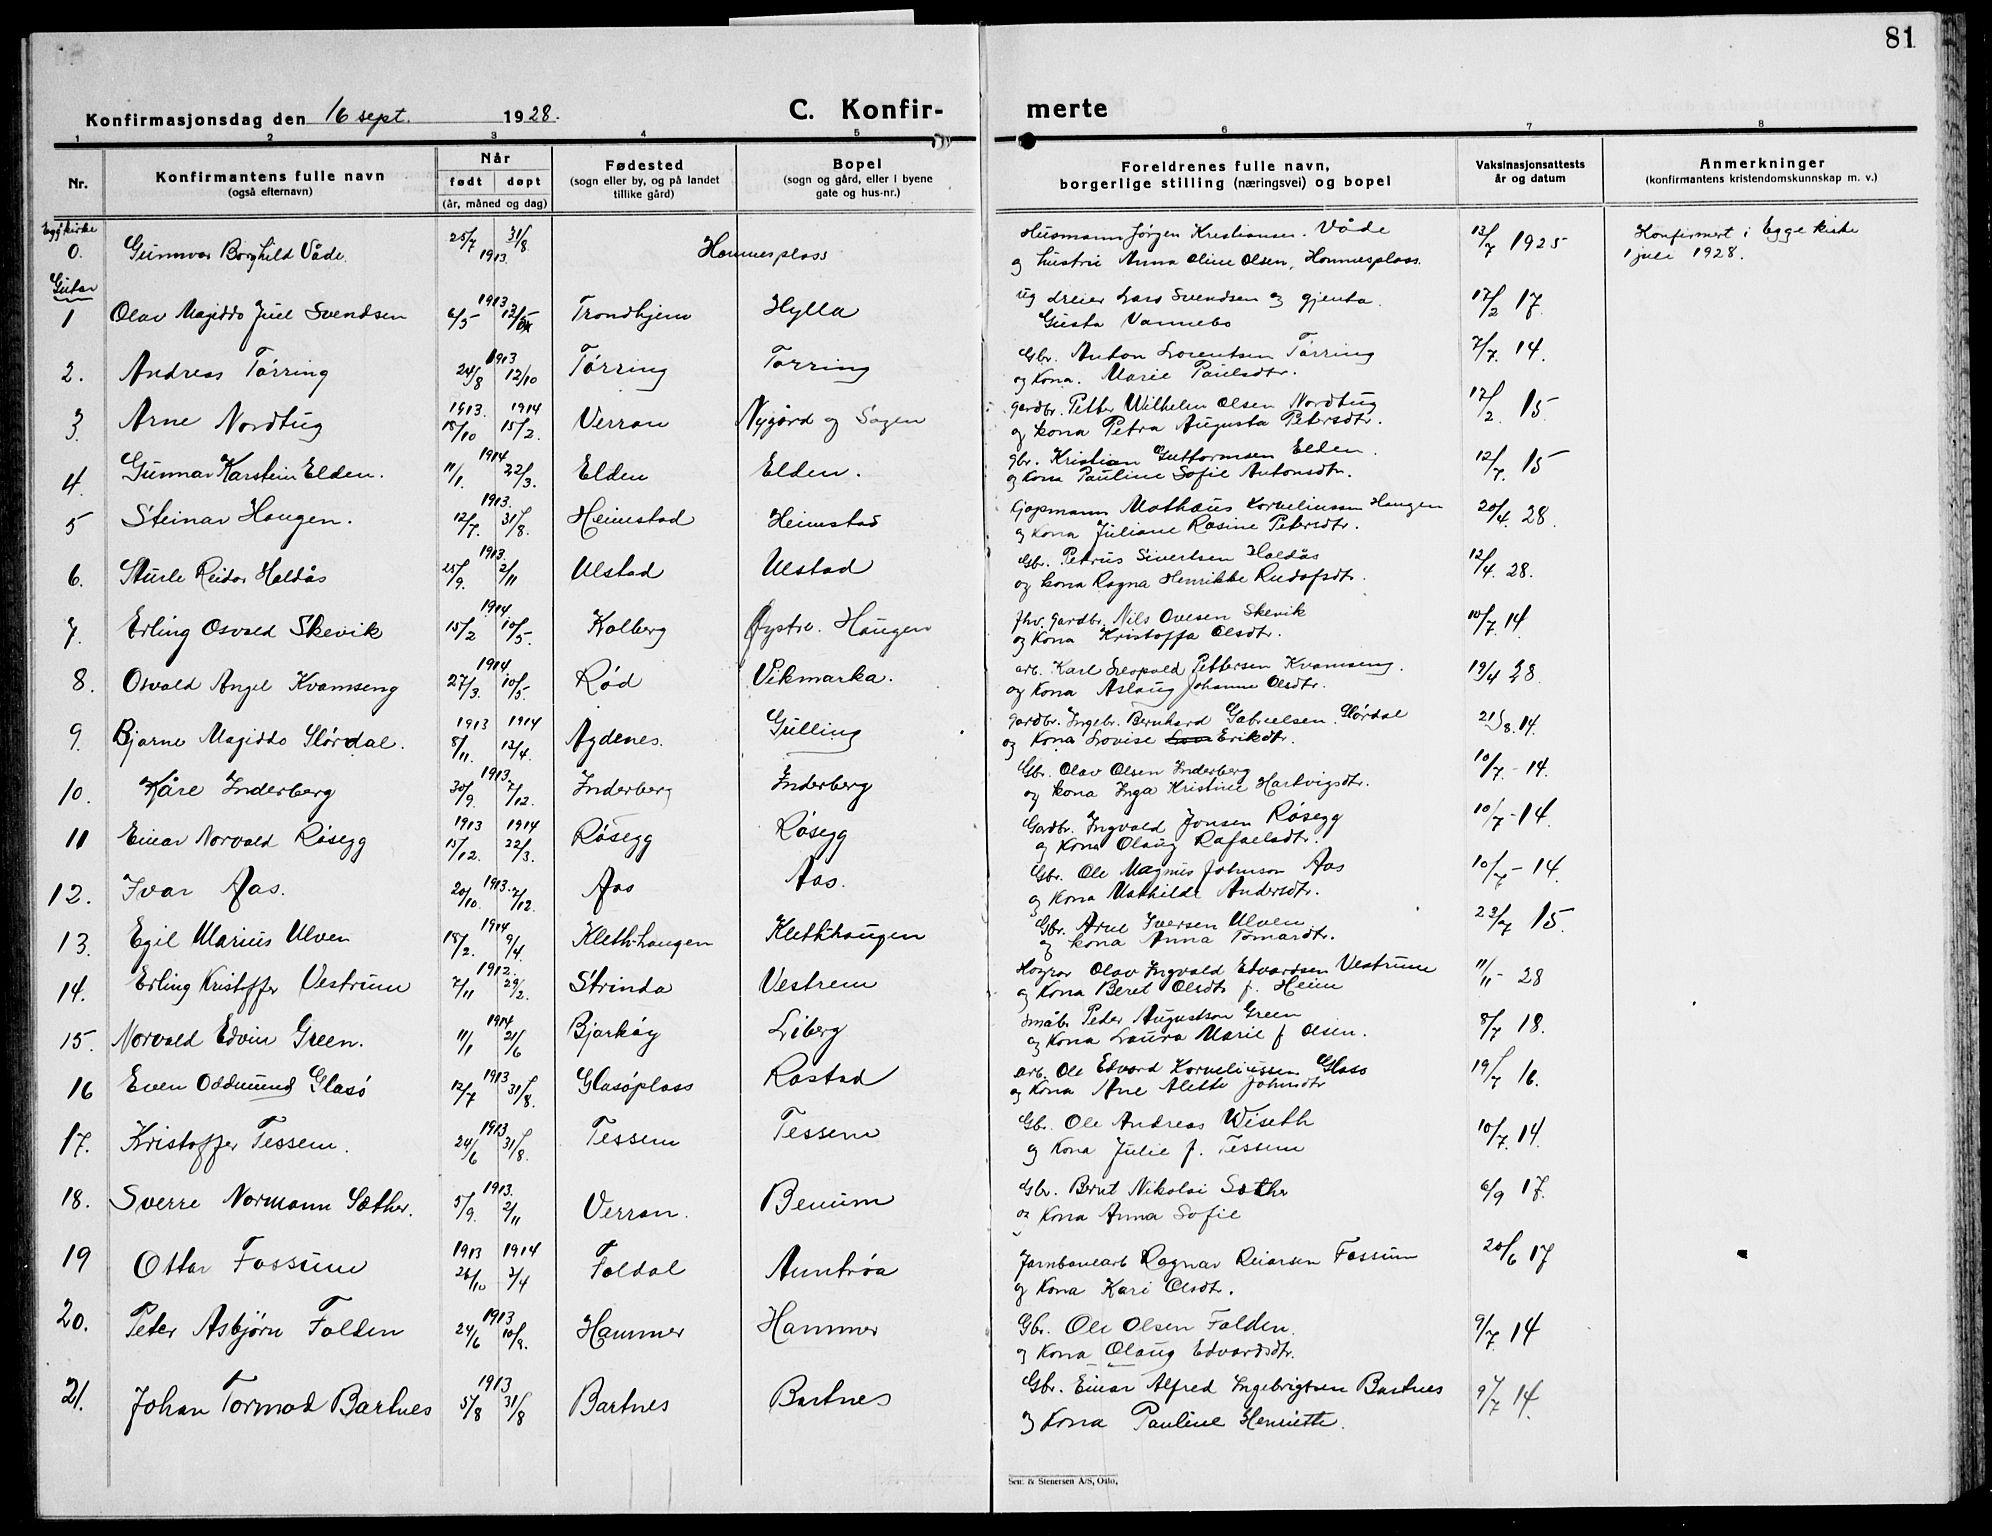 81
Konfirmasjonsdag den 16 sept. 1928.
C. Konfir- merte
1 2 3 4 5 6 7 8
Nr.
Konfirmantens fulle navn
(også efternavn)
Når
født døpt
(år, måned og dag)
Fødested
(sogn eller by, og på landet
tillike gård)
Bopel
(sogn og gård, eller i byene
gate og hus-nr.)
Foreldrenes fulle navn,
borgerlige stilling (næringsvei) og bopel
Vaksinasjonsattests
år og datum
Anmerkninger
(konfirmantens kristendomskunnskap m. v.)
Egg kirke
0. Gunnvor Borghild Våde. 25/7 31/8 1913 Hammesplass Husmann Jørgen Kristiansen Våde 13/7 1925 Konfirmert i Egge kirke
og hustru Anna Oline Olsen, Hommesplass. 1 juli 1928.
Gutar
1 Olav Magiddo Juel Svendsen 1913 6/5 Trondhjem Hylla ug dreier Lars Svendsen og gjenta 17/2 17.
Gusta Vannebo
2. Andreas Tørring 1913 24/8 12/10 Tørring Tørring Gbr. Anton Lorentsen Tørring 7/7. 14.
og Kona. Marie Paulsdtr.
3. Arne Nordtug 1913. 15/10 1914 15/2. Verran Nygård og Sagen gardbr. Petter Wilhelm Olsen Nordtug 17/2. 15.
og kona Petra Augusta Petersdtr.
4. Gunnar Karstein Elden. 1914 11/1. 22/3. Elden Elden. gbr. Kristian Guttormsen Elden 12/7. 15
og kona Pauline Sofie Antonsdtr.
5 Steinar Haugen. 1913. 12/7. 31/8. Heimstad Heimstad Mathæus Korneliussen Haugen 20/4. 28.
og kona Juliane Rasine Petersdtr.
6. Sturle Reidar Haldås 1913. 25/9. 2/11 Ulstad Ulstad Gbr. Petrus Sivertsen Haldås 12/4. 28.
og kona Ragna Henrikke
7. Erling Osvald Skevik 1914 15/2 10/5. Kolberg Øystre. Haugen fhv. Gardbr. Nils Ovesen Skevik 10/7. 14
og Kona Kristoffa Olsdtr.
8. Osvald Angel Kvamseng 1914 27/3. 10/5. Rød Vikmarka. arb. Karl Leopold Pettersen Kvamseng. 19/4 28.
og Kona Aslaug Johanne Olsdtr.
9. Bjarne Magiddo Slørdal. 1913 8/11. 1914 13/4. Agdenes. Gulling gardbr. Ingebr. Bernhard Gabrielsen Slørdal 21/8. 14.
og Kona Lovise Eriksdtr.
10. Kåre Inderberg 1913 30/9. 7/12. Inderberg Inderberg Gbr. Olav Olsen Inderberg 10/7 - 14.
og kona Inga Kristine Hartvigsdtr.
11 Einar Norvald Røsegg 1913 15/12. 1914 22/3. Røsegg Røsegg Gardbr. Ingvald Jonsen Røsegg 10/7 - 14.
og Kona Olaug Rafaelsdtr.
12. Ivar Aas. 1913. 20/10. 7/12. Aas Aas. Gbr. Ole Magnus Johnson Aas 10/7 - 14.
og Kona Mathilde Andersdtr.
13. Egil Marius Ulven 1914 15/2. 9/4. Kleth-haugen Klethhaugen Gbr. Arne Iversen Ulven 23/7 15.
og kona Anna Tomasdtr.
14. Erling Kristoffer Vestrum 1912. 7/11 29/2. Strinda Vestrem Olav Ingvald Edvardsen Vestrum 11/11 - 28
og Kona Beret Olsdtr f. Heim
15. Norvald Edvin Green. 1914 11/1 21/6 Bjarkøy Liberg småbr. Peder Augustson Green 8/7 18.
og Kona Laura Marie f Olsen.
16 Even Oddmund Glasø 1913 12/7 31/8. Glasøplass Rostad arb. Ole Edvard Korneliussen Glaso 19/7 16.
og Kona Ane Alette Johnsdtr
17. Kristoffer Tessem. 1913 24/6 31/8. Tessem Tessem Gbr. Ole Andreas Wiseth 10/7. 14.
og Kona Julie f. Tessem
18. Sverre Normann Sæther. 1913. 5/9. 2/11 Verran. Benum Gbr. Bernt Nikolai Sæther 6/9 17.
og Kona Anna Sofie
19 Ottar Fossum 1913 26/10 1914 2/4 Foldal Auntrøa Jarnbanearb Ragnar Reiarsen Fossum 20/6 17
og Kona Kari Olsdtr.
20. Peter Asbjørn Folden 1913 24/6 10/8. Hammer Hammer Gbr. Ole Olsen Folden 9/7 14
og Kona Olaug Edvardsdtr.
21. Johan Tormod Bartnes 1913 5/8 31/8 Bartnes Bartnes Gbr. Einar Alfred Ingebrigtsen Bartnes 9/7 14.
og Kona Pauline Henriette.
Sem & Stenersen A/S, Oslo.